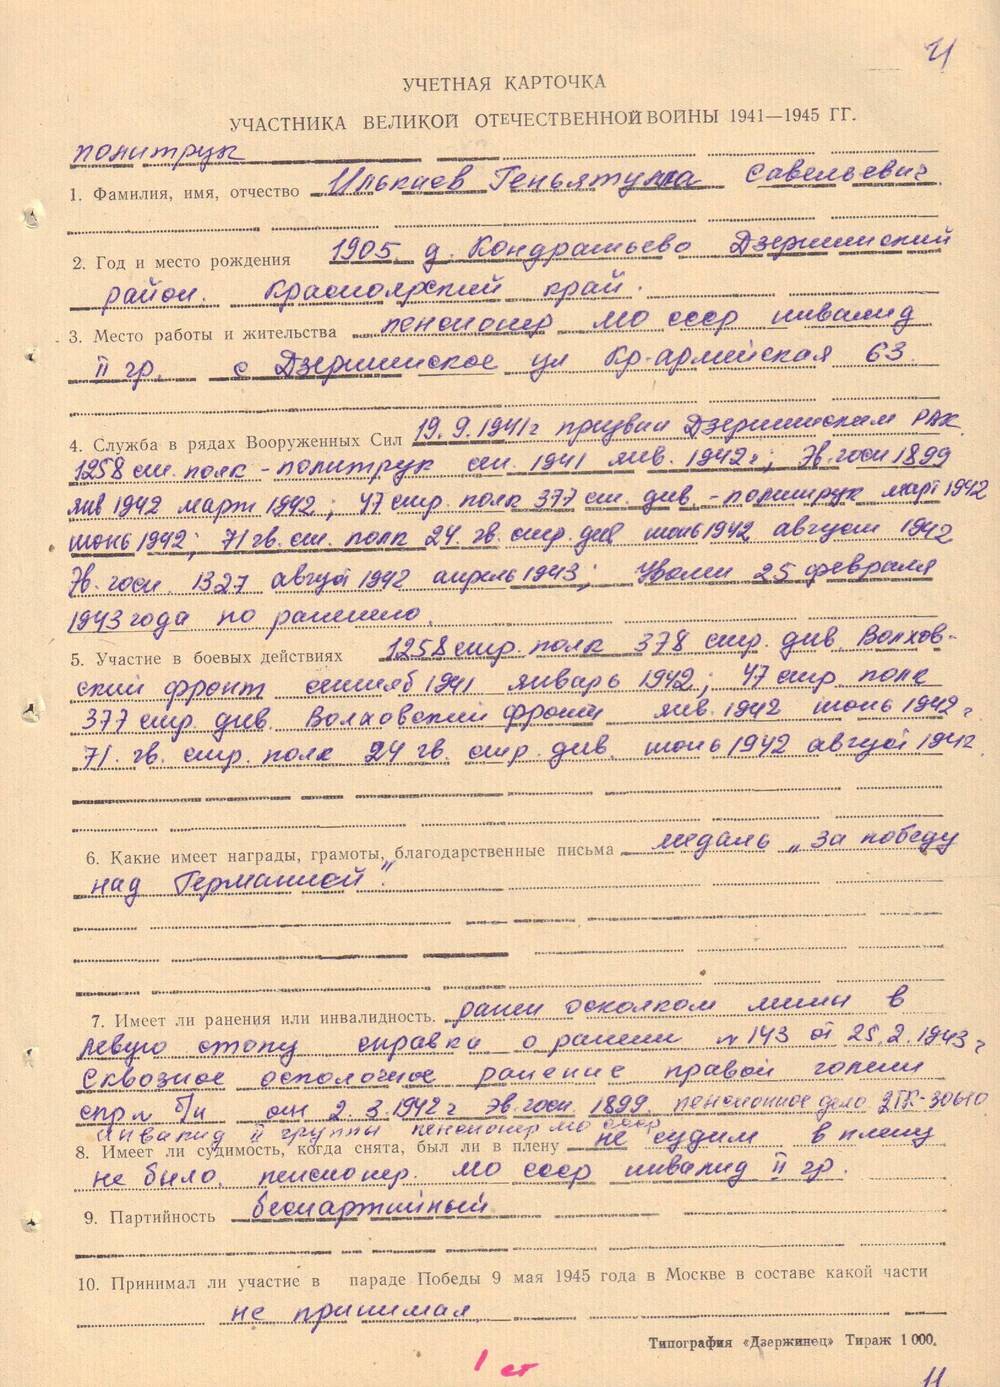 И
УЧЕТНАЯ КАРТОЧКА
УЧАСТНИКА ВЕЛИКОЙ ОТЕЧЕСТВЕННОЙ ВОЙНЫ 1941—1945 ГГ.
политрук
1. Фамилия, имя, отчество Илькаев Геньятулла Савельевич
2. Год и место рождения 1905 д. Кондратьево Дзержинский
район. Красноярский край.
3. Место работы и жительства пенсионер МО СССР инвалид
II гр. с Дзержинское ул Кр-армейская 63
4. Служба в рядах Вооруженных Сил 19.9.1941г призван Дзержинским РВК
1258 стр. полк - политрук сен. 1941 янв. 1942г; Эв. госп 1899
янв 1942 март 1942; 47 стр. полк 377 ст. див. - политрук март 1942
июнь 1942; 71 гв. ст. полк 24 гв. стр. див июнь 1942 август 1942
Эв. госп. 1327 август 1942 апрель 1943; Уволен 25 февраля
1943 года по ранению.
5. Участие в боевых действиях 1258 стр. полк 378 стр. див. Волхов-
ский фронт сентяб 1941 январь 1942; 47 стр полк
377 стр. див. Волховский фронт янв. 1942 июнь 1942 г
71. гв. стр. полк 24 гв. стр. див. июнь 1942 август 1942г.
6. Какие имеет награды, грамоты, благодарственные письма медаль „За победу
над Германией".
7. Имеет ли ранения или инвалидность. ранен осколком мины в
левую стопу справка о ранени № 143 от 25.2.1943 г
Сквозное осколочное ранение правой голени
спр № б/н от 2.3.1942 г эв. госп. 1899. пенсионное дело 2ГК-30610
инвалид II группы пенсионер МО СССР
8. Имеет ли судимость, когда снята, был ли в плену не судим в плену
не был. пенсионер. МО СССР инвалид II гр.
9. Партийность беспартийный
10. Принимал ли участие в параде Победы 9 мая 1945 года в Москве в составе какой части
не принимал
Типография «Дзержинец» Тираж 1 000.
1 ст
11